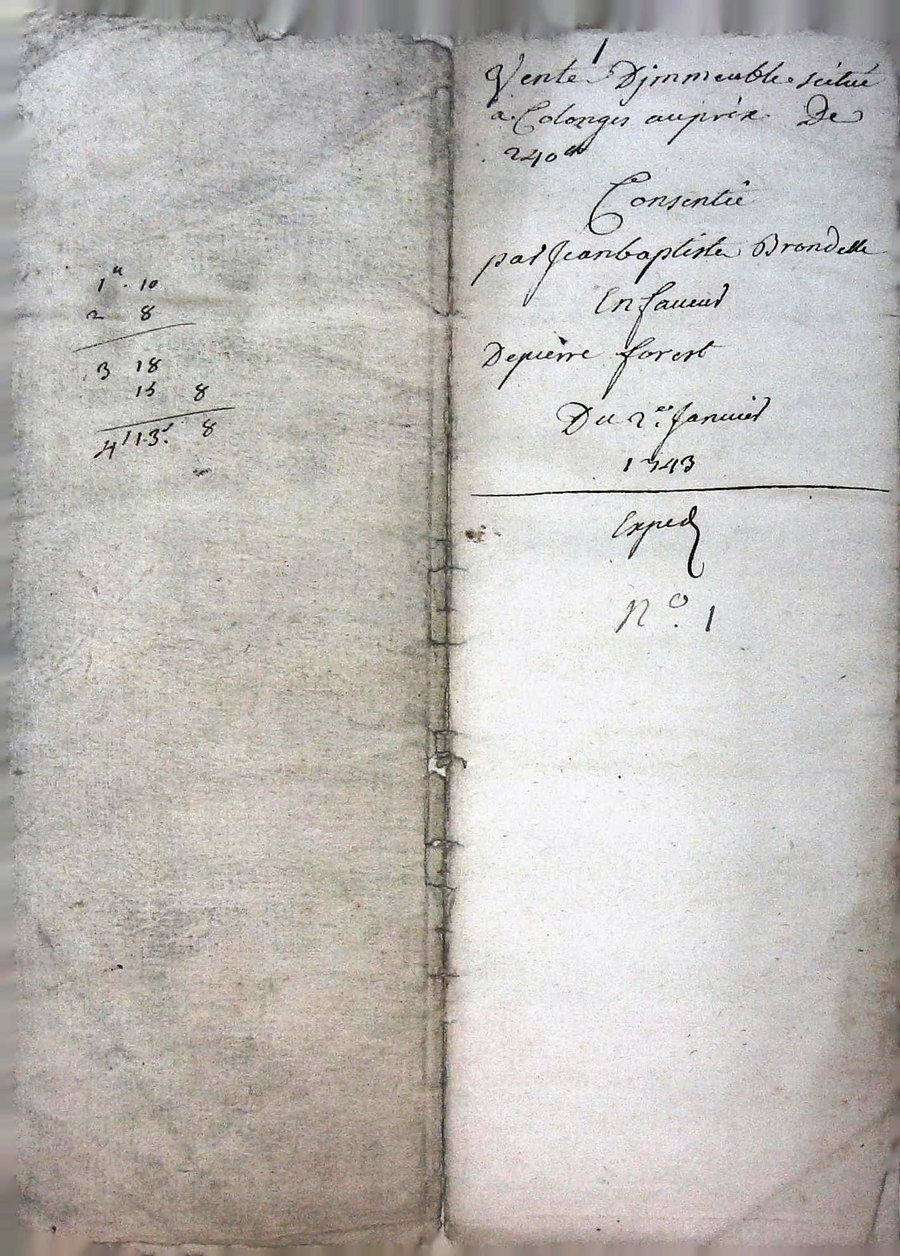 1lt. 10
2 8
3 18
15 8
4lt 13s. 8
1
Vente Djmmeuble scitué
a Colonges auprix De
240lt
Consentie
par Jeanbaptiste Brondelle
En faveur
Depierre forest
Du 2er. Janvier
1743
Exped
N° . 1